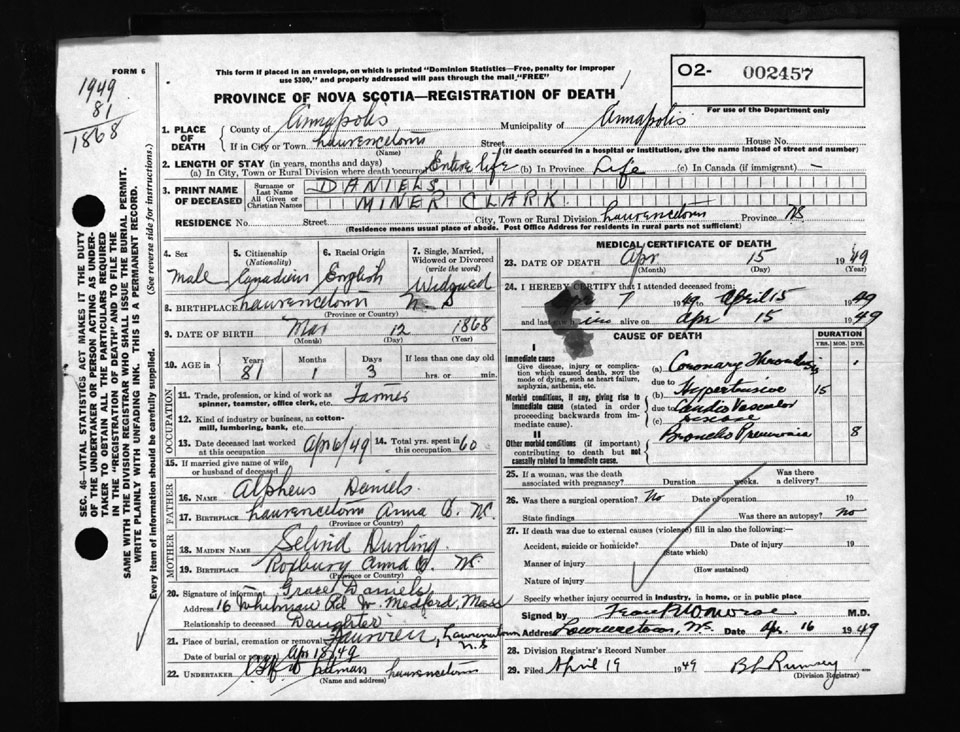 FORM 6
1949
81
1868
This form if placed in an envelope, on which is printed "Dominion Statistics—Free, penalty for improper
use $300," and properly addressed will pass through the mail "FREE"
PROVINCE OF NOVA SCOTIA—REGISTRATION OF DEATH
O2- 002457
For use of the Department only
1. PLACE OF DEATH
County of Annapolis Municipality of Annapolis
If in City or Town Lawrencetown Street House No.
(Name) (If death occurred in a hospital or institution, give the name instead of street and number)
2. LENGTH OF STAY (in years, months and days)
(a) In City, Town or Rural Division where death occurred Entire life (b) In Province Life (c) In Canada (if immigrant) —
3. PRINT NAME OF DECEASED
Surname or Last Name DANIELS
All Given or Christian Names MINER CLARK
RESIDENCE No. Street City, Town or Rural Division Lawrencetown Province NS
(Residence means usual place of abode. Post Office Address for residents in rural parts not sufficient)
4. Sex Male
5. Citizenship (Nationality) Canadian
6. Racial Origin English
7. Single, Married, Widowed or Divorced (write the word) Widowed
8. BIRTHPLACE Lawrencetown N S
(Province or Country)
9. DATE OF BIRTH Mar 12 1868
(Month) (Day) (Year)
10. AGE in Years 81 Months 1 Days 3 If less than one day old
hrs. or min.
OCCUPATION
11. Trade, profession, or kind of work as spinner, teamster, office clerk, etc. Farmer
12. Kind of industry or business, as cotten-mill, lumbering, bank, etc.
13. Date deceased last worked at this occupation Apr 6/49 14. Total yrs. spent in this occupation 60
15. If married give name of wife or husband of deceased
FATHER
16. NAME Alpheus Daniels
17. BIRTHPLACE Lawrencetown Anna Co. NS.
(Province or Country)
MOTHER
18. MAIDEN NAME Durling
19. BIRTHPLACE Roxbury Anna Co. NS.
(Province or Country)
20. Signature of informant Grace Daniels
Address 16 Whitman Rd W. Medford, Mass
Relationship to deceased Daughter
21. Place of burial, cremation or removal Fairview, Lawrencetown N.S
Date of burial or removal Apr 18/49
22. UNDERTAKER Lawrencetown
(Name and address)
MEDICAL CERTIFICATE OF DEATH
23. DATE OF DEATH Apr 15 1949
(Month) (Day) (Year)
24. I HEREBY CERTIFY that I attended deceased from:
Apr 7 1949 to April 15 1949
and last saw him alive on Apr 15 1949
CAUSE OF DEATH DURATION
YRS. MOS. DYS.
I
Immediate cause
Give disease, injury or complication which caused death, NOT the mode of dying, such as heart failure, asphyxia, asthenia, etc.
(a) Coronary Thrombosis 1
due to
Morbid conditions, if any, giving rise to immediate cause (stated in order proceeding backwards from immediate cause).
(b) Hypertensive 15
due to Cardio Vascular
(c) disease
II
Other morbid conditions (if important) contributing to death but not causally related to immediate cause.
Broncho Pneumonia 8
25. If a woman, was the death associated with pregnancy? Duration weeks. Was there a delivery?
26. Was there a surgical operation? No Date of operation 19
State findings Was there an autopsy? no
27. If death was due to external causes (violence) fill in also the following:—
Accident, suicide or homicide? Date of injury 19
(State which)
Manner of injury
(How sustained)
Nature of injury
Specify whether injury occurred in industry, in home, or in public place
Signed by M.D.
Address Lawrencetown, NS Date Apr. 16 1949
28. Division Registrar's Record Number
29. Filed April 19 1949 Rumsey
(Division Registrar)
SEC. 46—VITAL STATISTICS ACT MAKES IT THE DUTY
OF THE UNDERTAKER OR PERSON ACTING AS UNDER-
TAKER TO OBTAIN ALL THE PARTICULARS REQUIRED
IN THE "REGISTRATION OF DEATH" AND TO FILE THE
SAME WITH THE DIVISION REGISTRAR WHO SHALL ISSUE THE BURIAL PERMIT.
WRITE PLAINLY WITH UNFADING INK. THIS IS A PERMANENT RECORD.
Every item of information should be carefully supplied. (See reverse side for instructions.)